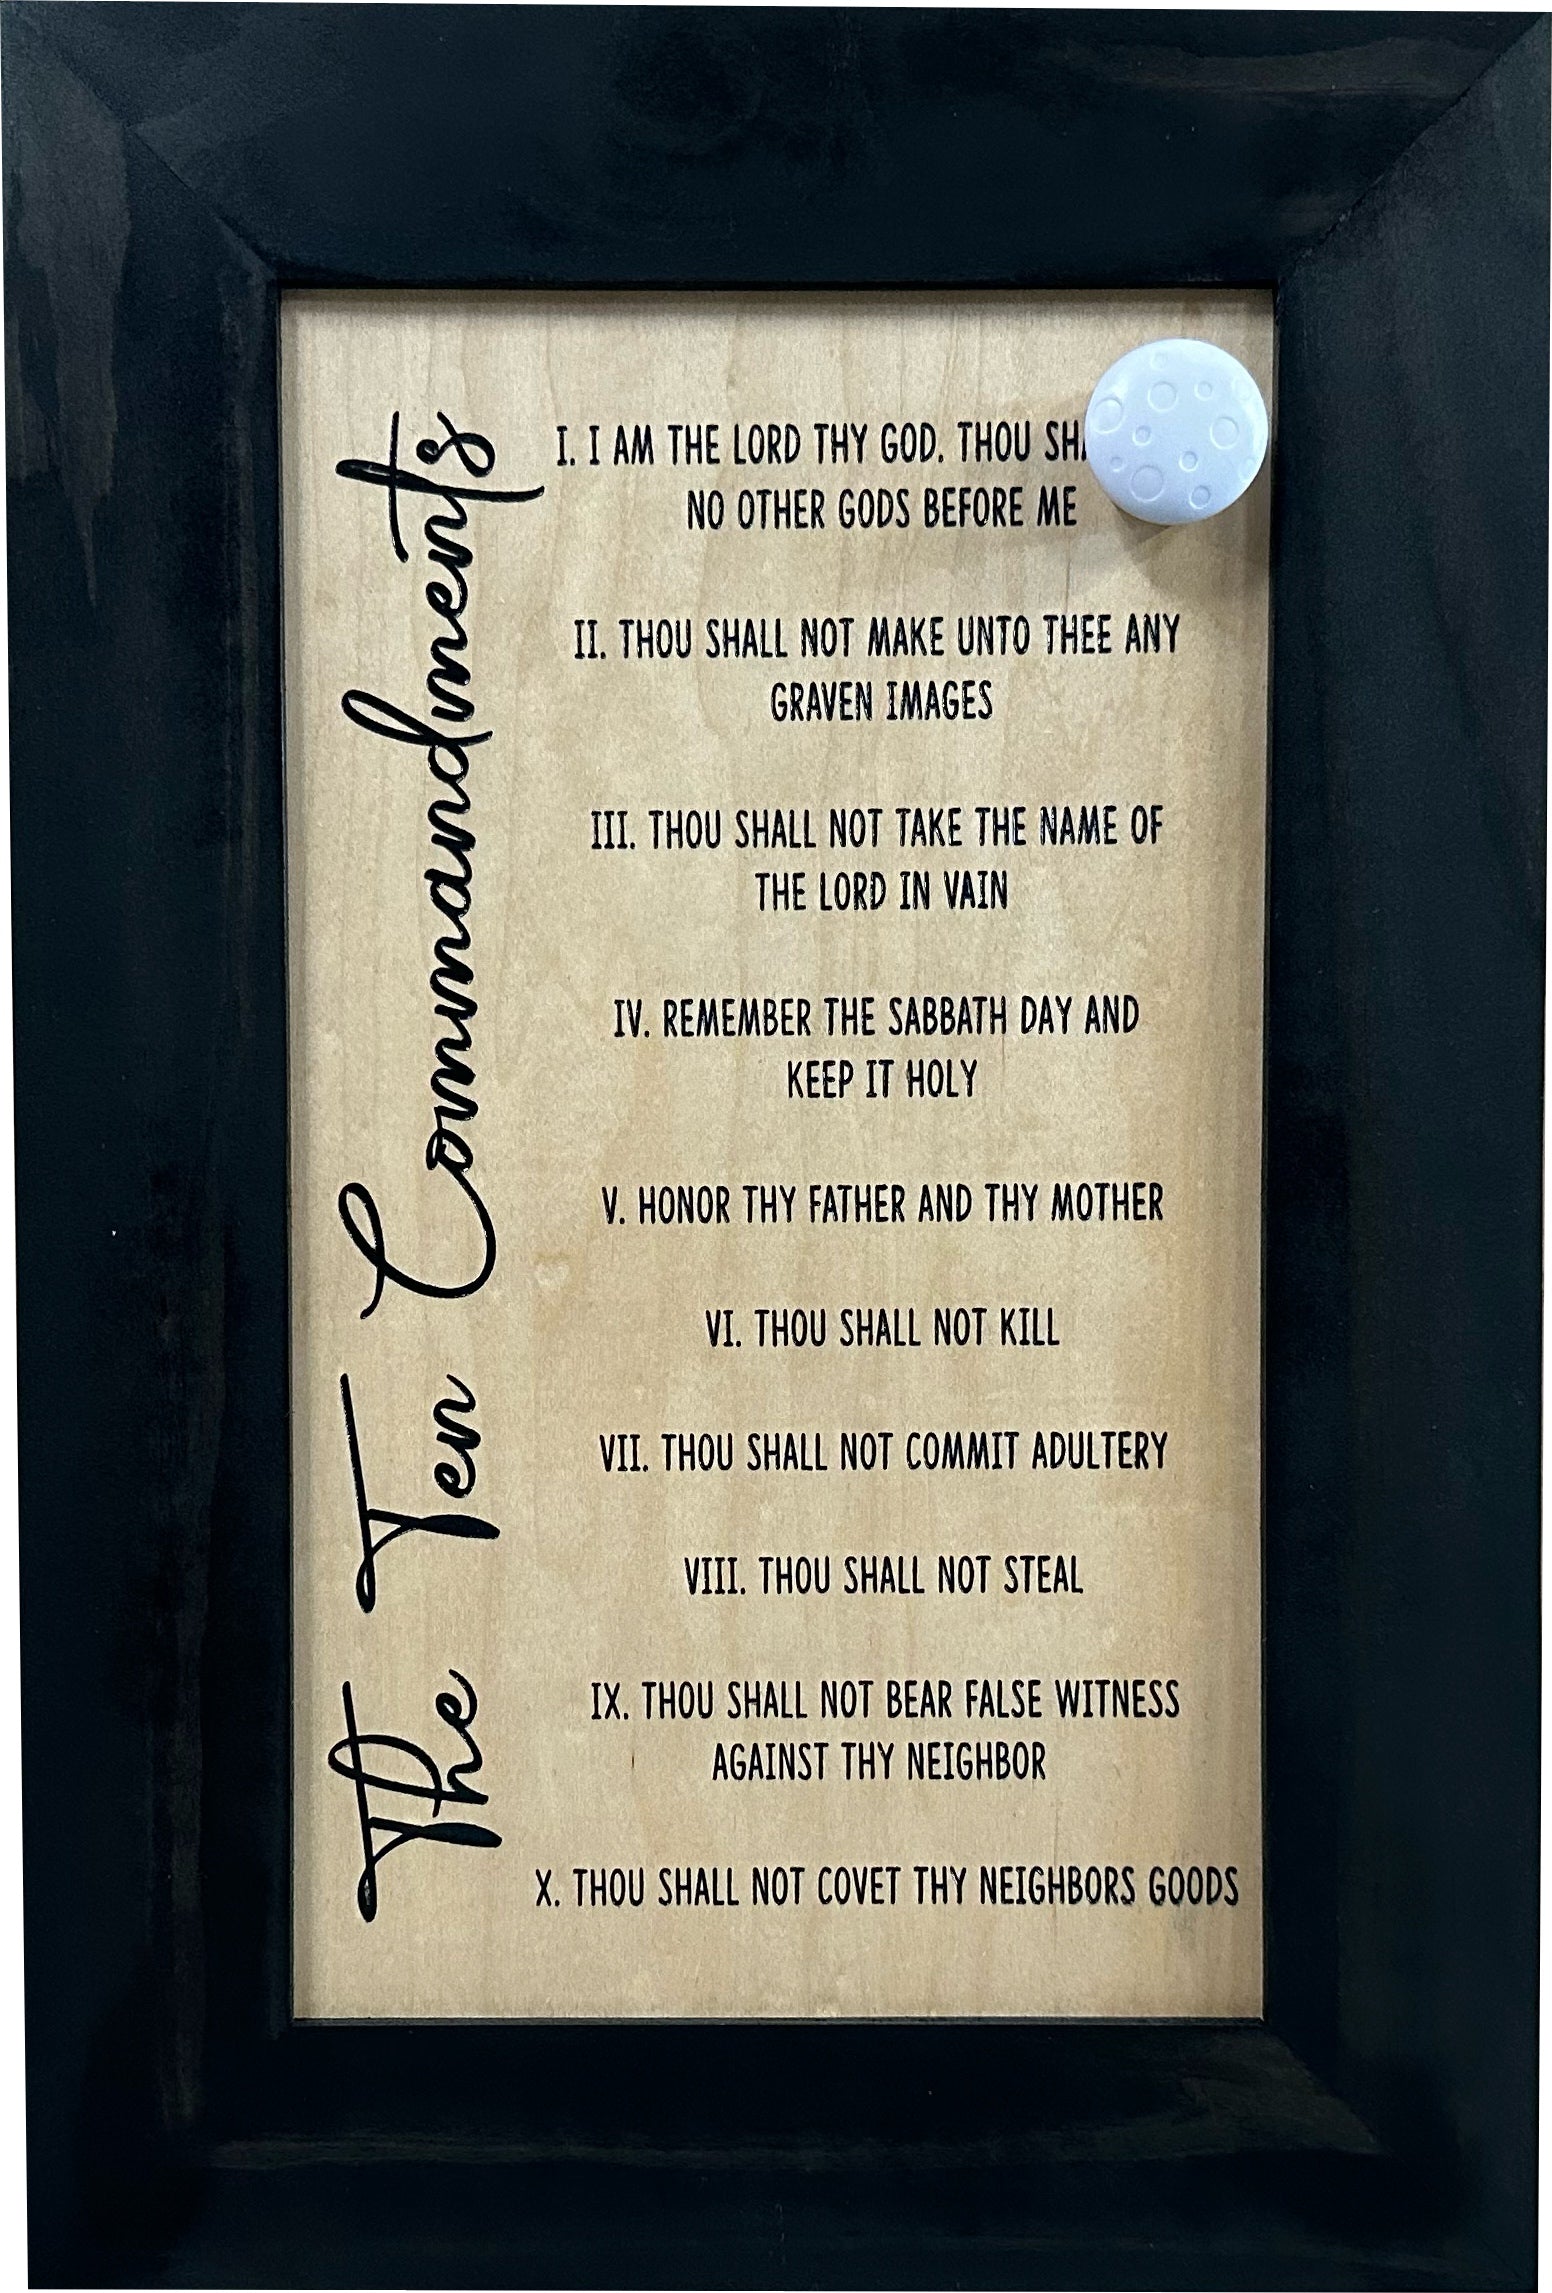 The Ten Commandments
I. I AM THE LORD THY GOD. THOU
NO OTHER GODS BEFORE ME
II. THOU SHALL NOT MAKE UNTO THEE ANY
GRAVEN IMAGES
III. THOU SHALL NOT TAKE THE NAME OF
THE LORD IN VAIN
IV. REMEMBER THE SABBATH DAY AND
KEEP IT HOLY
V. HONOR THY FATHER AND THY MOTHER
VI. THOU SHALL NOT KILL
VII. THOU SHALL NOT COMMIT ADULTERY
VIII. THOU SHALL NOT STEAL
IX. THOU SHALL NOT BEAR FALSE WITNESS
AGAINST THY NEIGHBOR
X. THOU SHALL NOT COVET THY NEIGHBORS GOODS